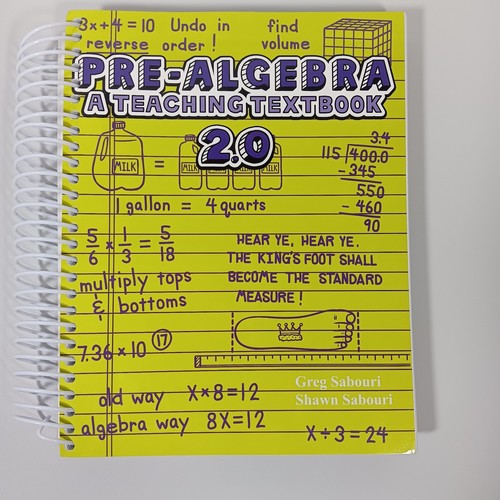 3x+4=10 Undo in
reverse order!
find
volume
PRE-ALGEBRA
A TEACHING TEXTBOOK
2.0
MILK
=
MILK
MILK
1 gallon = 4 quarts
3.4
115 /400.0
-345
550
-460
90
5/6 × 1/3 = 5/18
multiply tops
& bottoms
HEAR YE, HEAR YE.
THE KING'S FOOT SHALL
BECOME THE STANDARD
MEASURE!
7.36 × 10 17
Greg Sabouri
Shawn Sabouri
old way X×8=12
algebra way 8X=12
X÷3=24